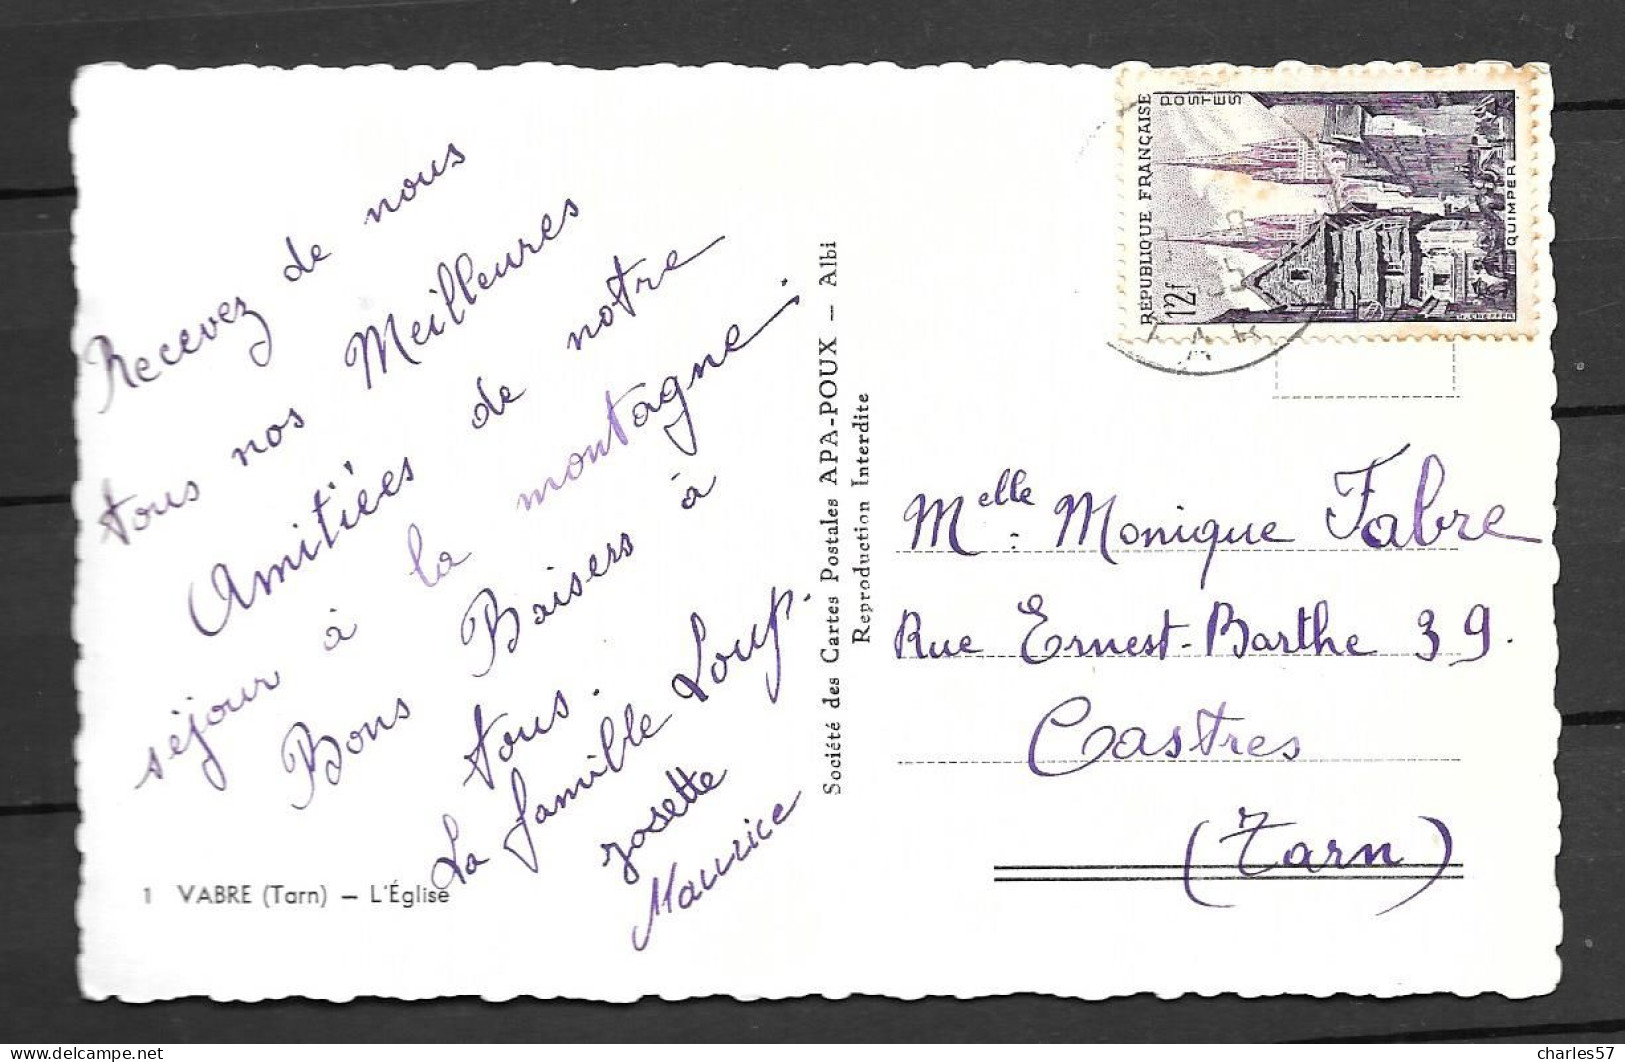 Recevez de nous
tous nos Meilleures
Amitiées de notre
séjour à la montagne.
Bons Baisers à
tous.
La famille Loup.
Josette
Maurice
1 VABRE (Tarn) — L'Église
Société des Cartes Postales APA-POUX — Albi
Reproduction Interdite
RÉPUBLIQUE FRANÇAISE
POSTES
12f
QUIMPER
Melle: Monique Fabre
Rue Ernest-Barthe 39.
Castres
(Tarn)
charles57